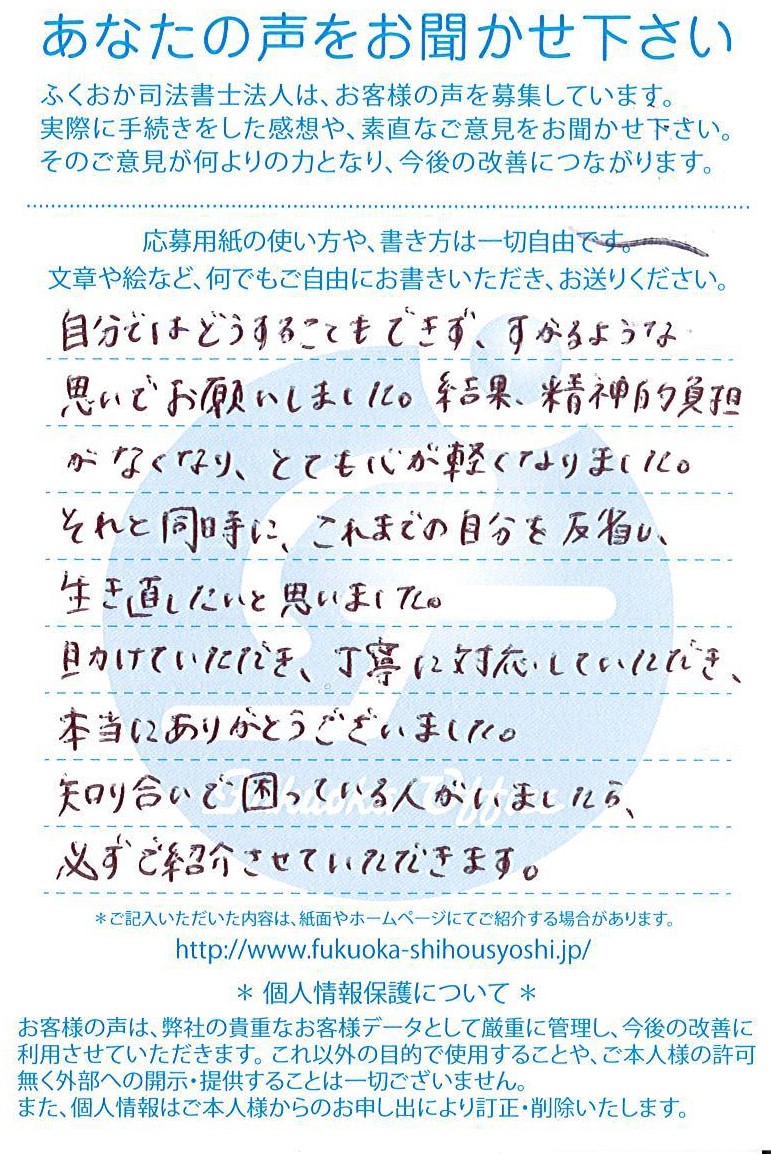 あなたの声をお聞かせ下さい
ふくおか司法書士法人は、お客様の声を募集しています。
実際に手続きをした感想や、素直なご意見をお聞かせ下さい。
そのご意見が何よりの力となり、今後の改善につながります。
応募用紙の使い方や、書き方は一切自由です。
文章や絵など、何でもご自由にお書きいただき、お送りください。
自分ではどうすることもできず、すがるような
思いでお願いしました。結果、精神的負担
がなくなり、とても心が軽くなりました。
それと同時に、これまでの自分を反省し、
生き直したいと思いました。
助けていただき、丁寧に対応していただき、
本当にありがとうございました。
知り合いで困っている人がいましたら、
必ずご紹介させていただきます。
Fukuoka Office
＊ご記入いただいた内容は、紙面やホームページにてご紹介する場合があります。
http://www.fukuoka-shihousyoshi.jp/
＊ 個人情報保護について ＊
お客様の声は、弊社の貴重なお客様データとして厳重に管理し、今後の改善に
利用させていただきます。これ以外の目的で使用することや、ご本人様の許可
無く外部への開示・提供することは一切ございません。
また、個人情報はご本人様からのお申し出により訂正・削除いたします。